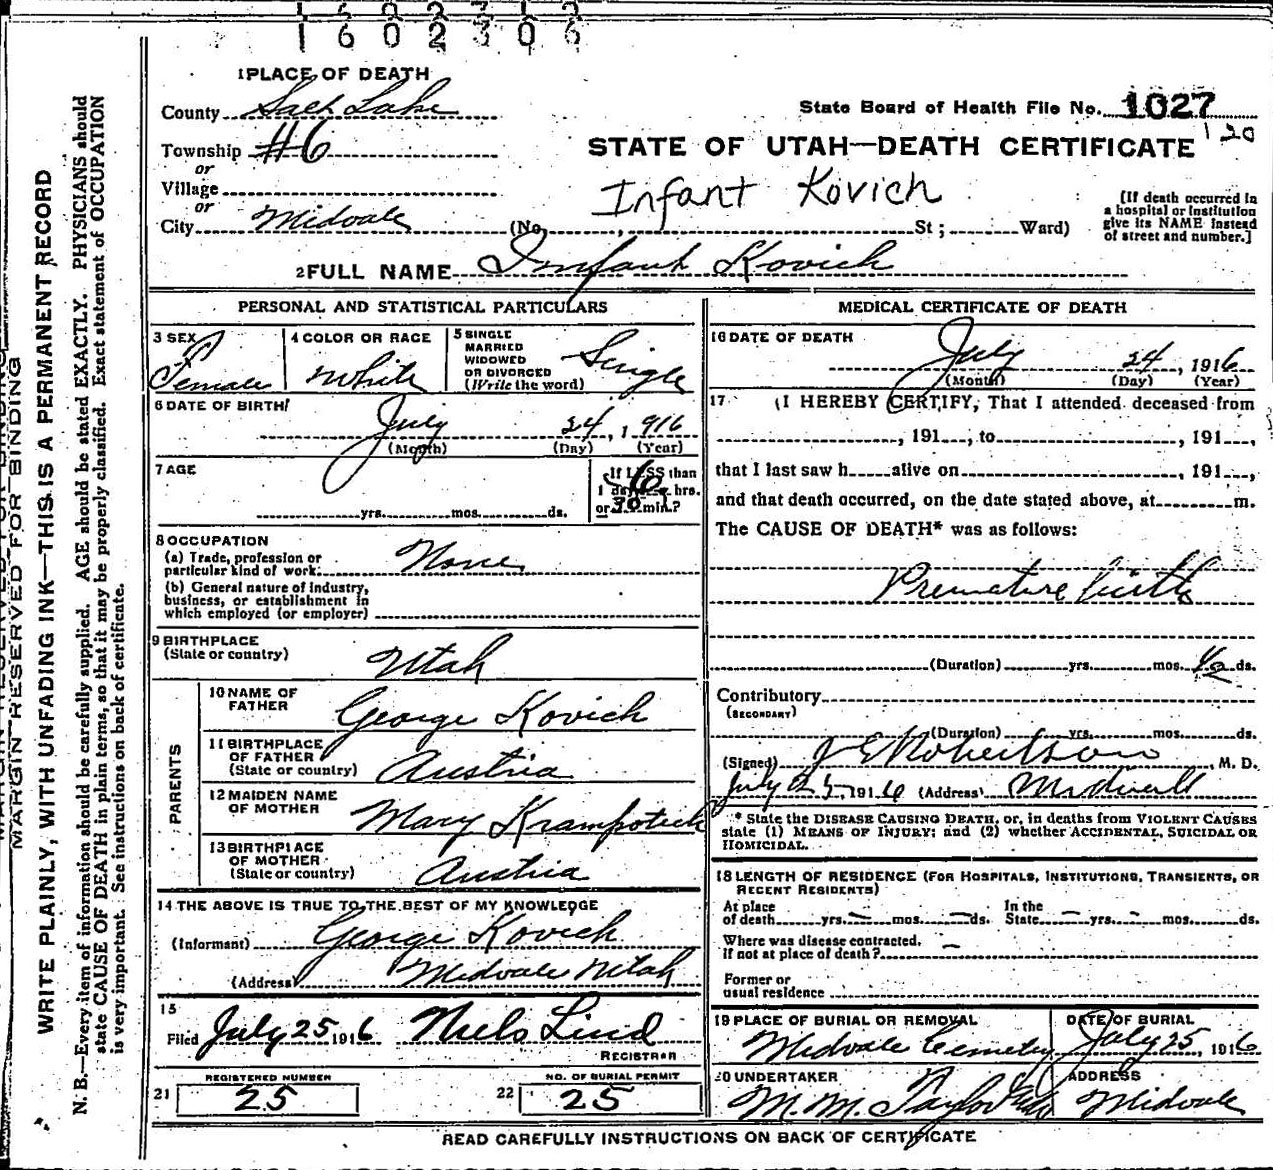 1602306
1 PLACE OF DEATH
County Salt Lake
State Board of Health File No. 1027
Township #6
120
STATE OF UTAH—DEATH CERTIFICATE
or
Village
Infant Kovich
or
City Midvale (No. , St; Ward)
[If death occurred in
a hospital or institution
give its NAME instead
of street and number.]
2 FULL NAME Infant Kovich
PERSONAL AND STATISTICAL PARTICULARS
3 SEX
Female
4 COLOR OR RACE
White
5 SINGLE
MARRIED
WIDOWED
OR DIVORCED
(Write the word)
Single
6 DATE OF BIRTH
July 24, 1916
(Month) (Day) (Year)
7 AGE
yrs. mos. ds.
If LESS than
1 day 6 hrs.
or 30 min.?
8 OCCUPATION
(a) Trade, profession or
particular kind of work: None
(b) General nature of industry,
business, or establishment in
which employed (or employer)
9 BIRTHPLACE
(State or country) Utah
PARENTS
10 NAME OF
FATHER George Kovich
11 BIRTHPLACE
OF FATHER
(State or country) Austria
12 MAIDEN NAME
OF MOTHER Mary Krampotich
13 BIRTHPLACE
OF MOTHER
(State or country) Austria
14 THE ABOVE IS TRUE TO THE BEST OF MY KNOWLEDGE
(Informant) George Kovich
(Address) Midvale Utah
15
Filed July 25 1916 Niels Lind
REGISTRAR
REGISTERED NUMBER
21 25
NO. OF BURIAL PERMIT
22 25
MEDICAL CERTIFICATE OF DEATH
16 DATE OF DEATH
July 24, 1916
(Month) (Day) (Year)
17 I HEREBY CERTIFY, That I attended deceased from
, 191 , to , 191 ,
that I last saw h alive on , 191 ,
and that death occurred, on the date stated above, at m.
The CAUSE OF DEATH* was as follows:
Premature birth
(Duration) yrs. mos. 1/2 ds.
Contributory
(SECONDARY)
(Duration) yrs. mos. ds.
(Signed) J E Robertson, M. D.
July 25, 1916 (Address) Midvale
* State the DISEASE CAUSING DEATH, or, in deaths from VIOLENT CAUSES
state (1) MEANS OF INJURY; and (2) whether ACCIDENTAL, SUICIDAL OR
HOMICIDAL.
18 LENGTH OF RESIDENCE (FOR HOSPITALS, INSTITUTIONS, TRANSIENTS, OR
RECENT RESIDENTS)
At place
of death yrs. — mos. — ds.
In the
State — yrs. - mos. ds.
Where was disease contracted,
if not at place of death? —
Former or
usual residence
19 PLACE OF BURIAL OR REMOVAL
Midvale Cemetery
DATE OF BURIAL
July 25, 1916
20 UNDERTAKER
M. M. Taylor
ADDRESS
Midvale
READ CAREFULLY INSTRUCTIONS ON BACK OF CERTIFICATE
MARGIN RESERVED FOR BINDING
WRITE PLAINLY, WITH UNFADING INK—THIS IS A PERMANENT RECORD
N. B.—Every item of information should be carefully supplied. AGE should be stated EXACTLY. PHYSICIANS should
state CAUSE OF DEATH in plain terms, so that it may be properly classified. Exact statement of OCCUPATION
is very important. See instructions on back of certificate.